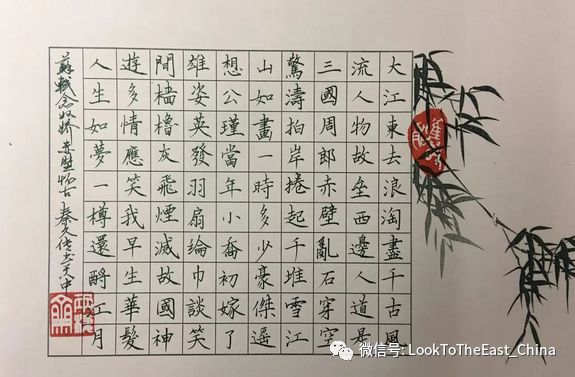 大江東去浪淘盡千古風
流人物故垒西邊人道是
三國周郎赤壁亂石穿空
驚濤拍岸捲起千堆雪江
山如畫一時多少豪傑遥
想公瑾當年小喬初嫁了
雄姿英發羽扇綸巾談笑
間檣櫓灰飛煙滅故國神
遊多情應笑我早生華髮
人生如夢一樽還酹江月
蘇軾念奴嬌赤壁懷古
微信号: LookToTheEast_China